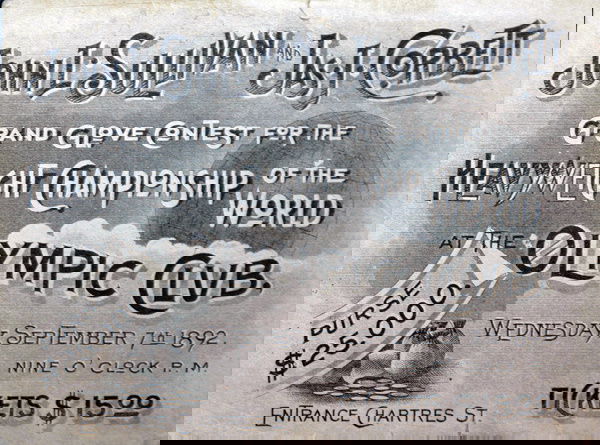 JOHN L. SULLIVAN AND JAS. J. CORBETT
GRAND GLOVE CONTEST FOR THE
HEAVYWEIGHT CHAMPIONSHIP OF THE WORLD
AT THE OLYMPIC CLUB.
PURSE $25,000.
WEDNESDAY, SEPTEMBER, 7TH 1892.
NINE O'CLOCK P.M.
TICKETS $15.00
ENTRANCE CHARTRES ST.